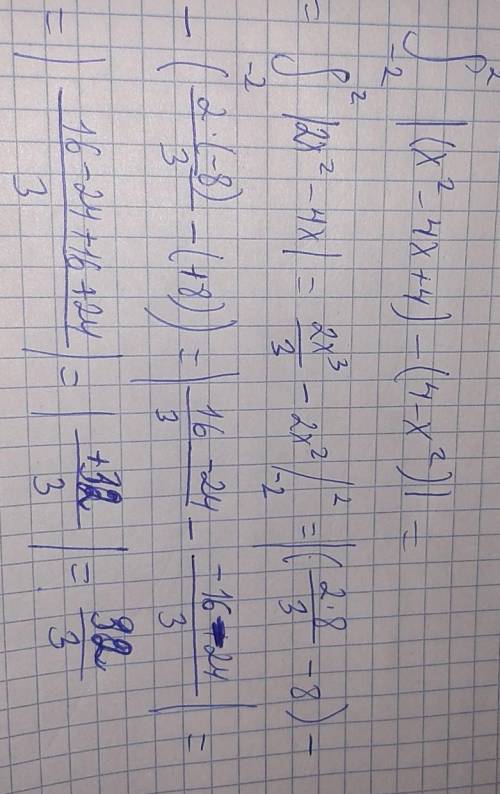 ∫₋₂² |(x² - 4x + 4) - (4 - x²)| =
= ∫₋₂² |2x² - 4x| = 2x³/3 - 2x² |₋₂² = |(2·8/3 - 8) -
- (2·(-8)/3 - (+8))| = |(16 - 24)/3 - (-16 - 24)/3| =
= |(16 - 24 + 16 + 24)/3| = |+32/3| = 32/3